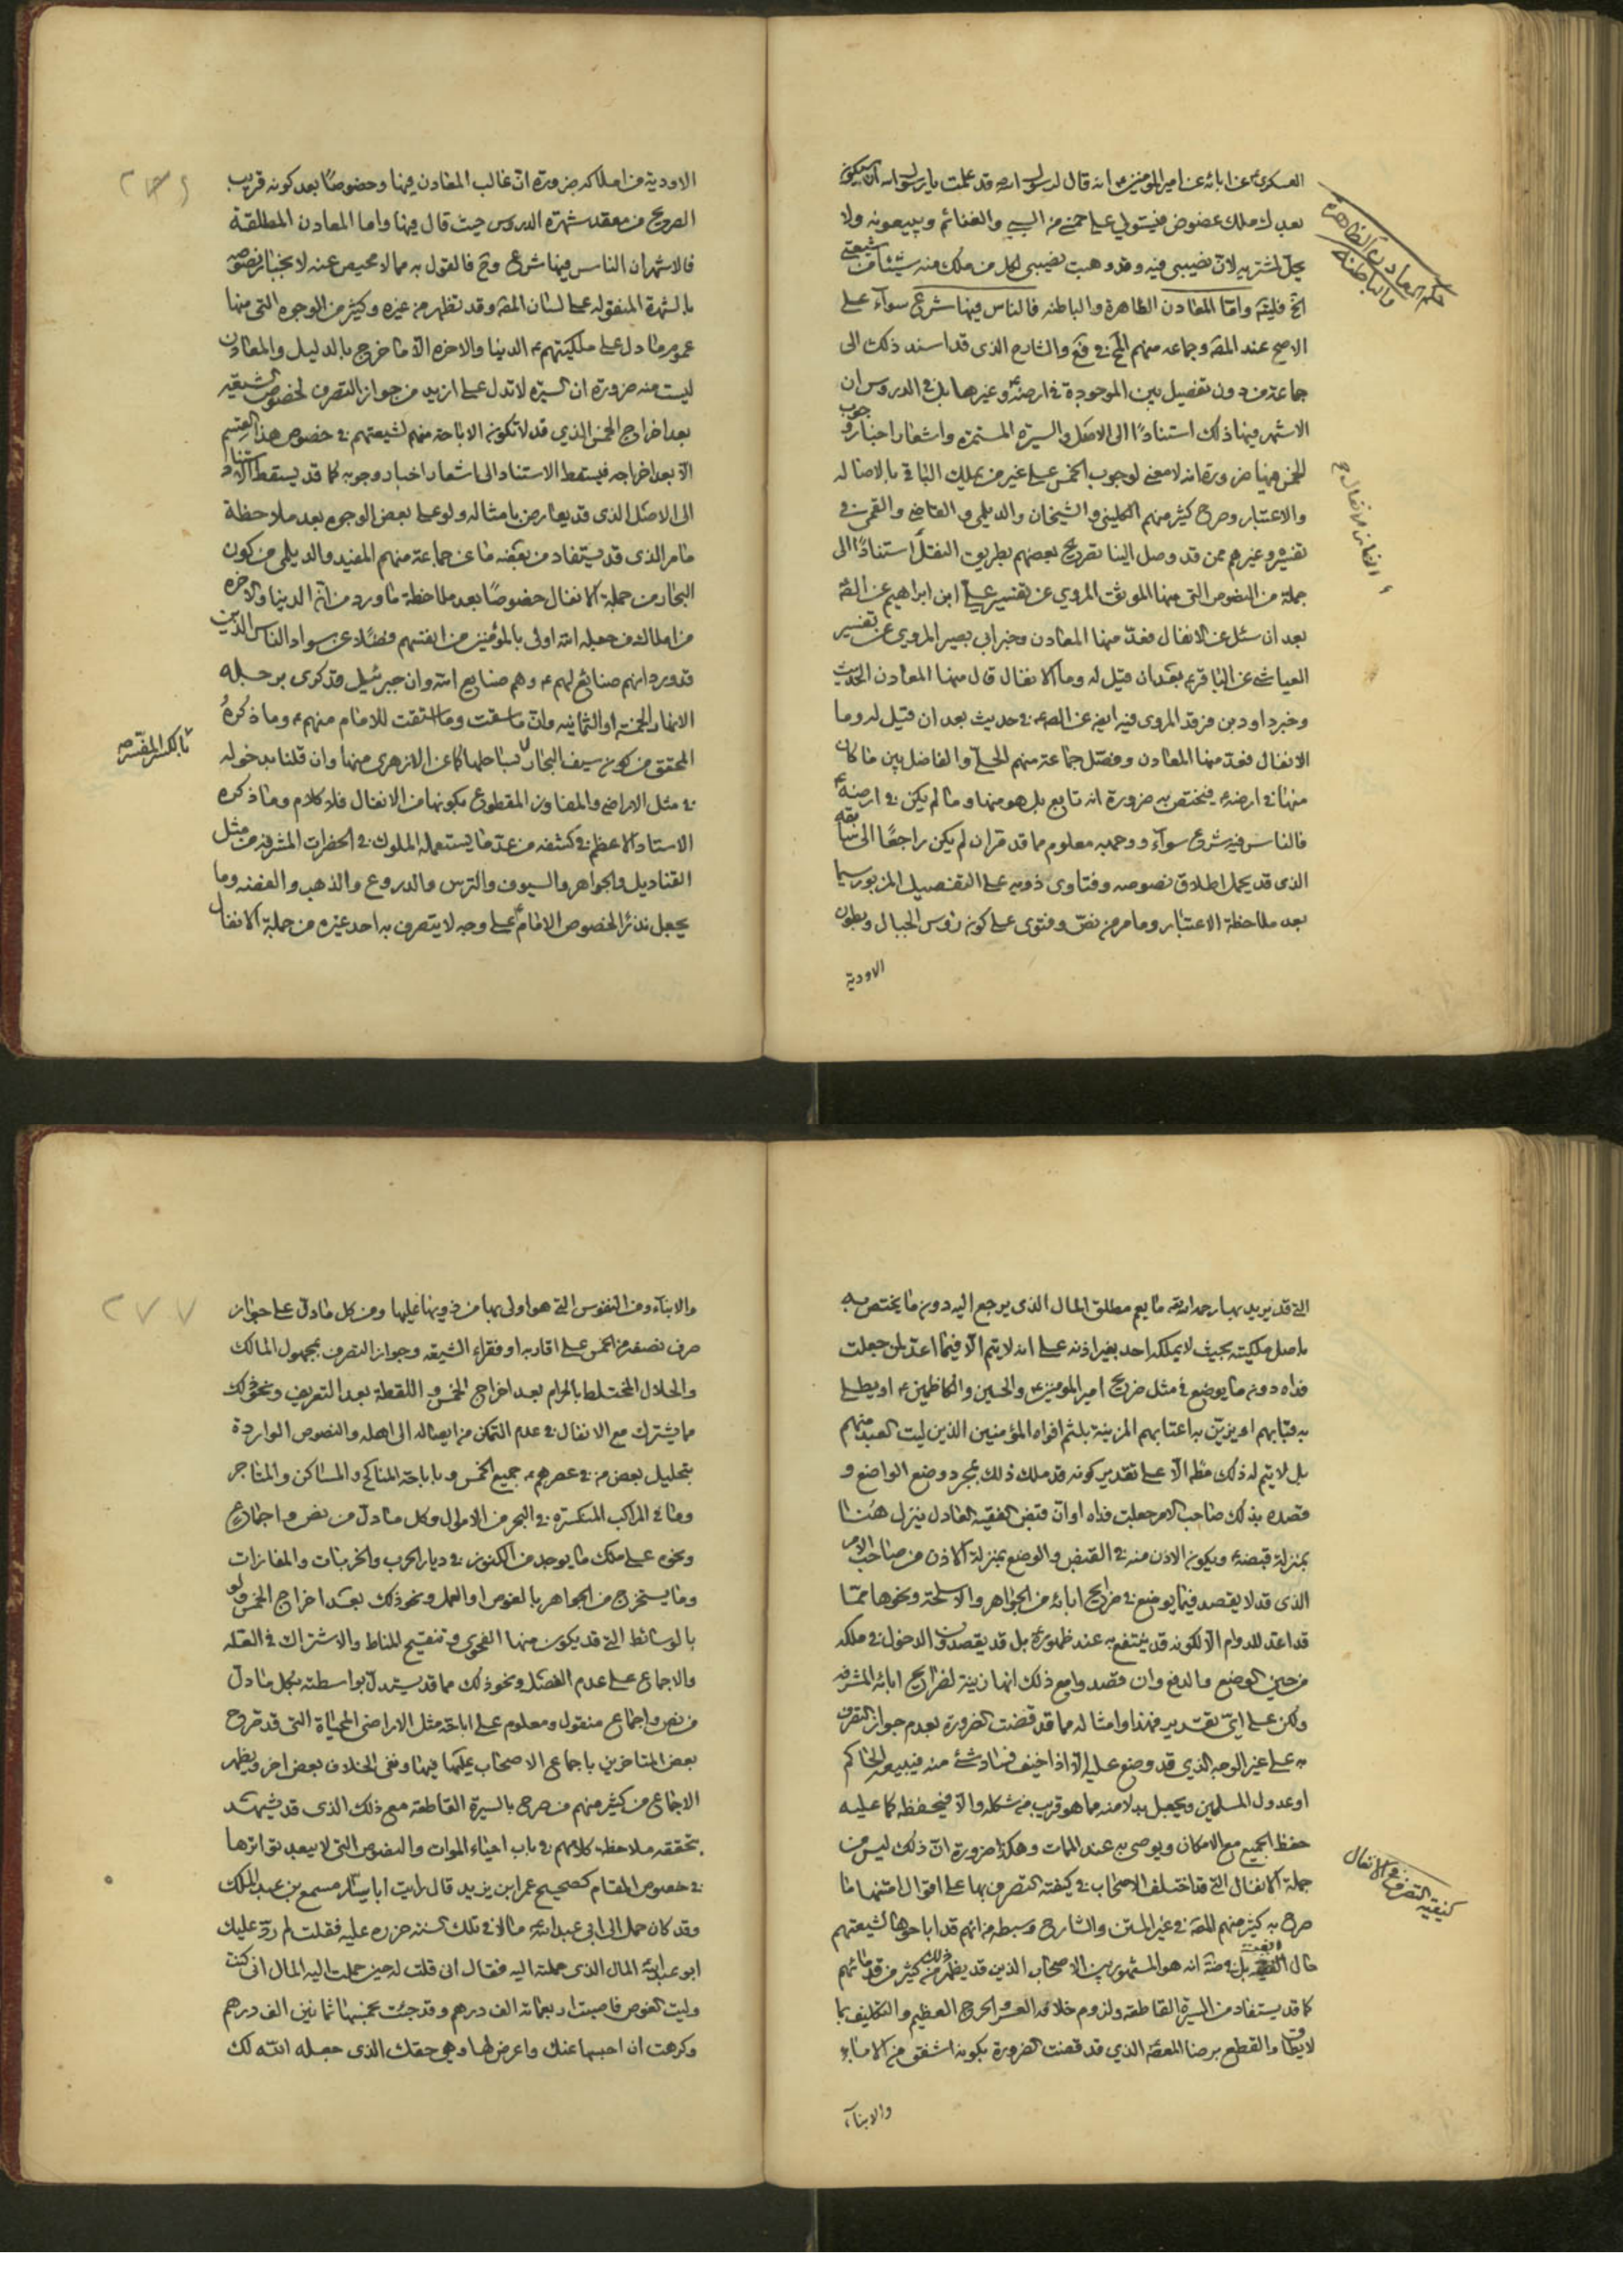 العسكري ع عن ابائه عن امير المؤمنين ع انه قال لرسول الله ص قد علمت يا رسول الله انه سيكون
بعدك ملك عضوض فيستولي على خمسي من السبي والغنائم ويبيعونه ولا
يحل لمشتريه لان نصيبي فيه وقد وهبت نصيبي لكل من ملك منه شيئا من شيعتي
الخ واما المعادن الظاهرة والباطنه فالناس فيها شرع سواء على
الاصح عند المصّ وجماعه منهم في والشارح الذي قد اسند ذلك الى
جماعة من دون تفصيل بين الموجودة في ارضه ع وغيرها بل في الدروس ان
الاشهر فيها ذلك استنادًا الى الاصل والسيرة المستمرة واشعار اخبار وجوب
الخمس فيها ضرورة انه لا معنى لوجوب الخمس على غير من يملك الباقي بالاصاله
والاعتبار وصرح كثير منهم الكليني والشيخان والديلمي والقاضي والقمي في
تفسيره وغيرهم ممن قد وصل الينا تصريح بعضهم بطريق النقل استنادًا الى
جملة من النصوص التي منها الموثق المروي عن تفسير علي ابن ابراهيم عن الصّ
بعد ان سئل عن الانفال فعدّ منها المعادن وخبر ابي بصير المروي عن تفسير
العياشي عن الباقر ع بعد ان قيل له وما الانفال قال منها المعادن الحديث
وخبر داود بن فرقد المروي فيه ايضه عن الصّ ع في حديث بعد ان قيل له وما
الانفال فعدّ منها المعادن وفصّل جماعة منهم الحلي والفاضل بين ما كان
منها في ارضه ع فيختص به ضرورة انه تابع بل هو منها وما لم يكن في ارضه ع
فالناس فيه شرع سواء ووجهه معلوم مما قد مر ان لم يكن راجعًا الى سابقه
الذي قد يحمل اطلاق نصوصه وفتاوى ذويه على التفصيل المزبور سيما
بعد ملاحظة الاعتبار وما مر من نصّ وفتوى على كون رؤس الجبال وبطون
الاودية
حكم المعادن الظاهرة
والباطنة
الاودية من املاكه ضرورة ان غالب المعادن فيها وخصوصًا بعد كونه قريب
الصريح من معقد شهرة الدروس حيث قال فيها واما المعادن المطلقة
فالاشهر ان الناس فيها شرع وح فالقول به مما لا محيص عنه لانجبار نصوصه
بالشهرة المنقوله على لسان المصّ وقد تظهر من غيره وكثير من الوجوه التي منها
عموم ما دل على ملكيتهم ع الدنيا والاخرة الا ما خرج بالدليل والمعادن
ليست منه ضرورة ان السيرة لا تدل على ازيد من جواز التصرف لخصوص الشيعه
بعد اخراج الخمس الذي قد لا تكون الاباحة منهم لشيعتهم في خصوص هذا القسم
الا بعد اخراجه فيسقط الاستناد الى اشعار اخبار وجوبه كما قد يسقط الاستناد
الى الاصل الذي قد يعارض بامثاله ولو على بعض الوجوه بعد ملاحظة
ما مر الذي قد يستفاد من بعضه ما عن جماعة منهم المفيد والديلمي من كون
البحار من جملة الانفال خصوصًا بعد ملاحظة ما ورد من ان الدنيا والاخرة
من املاك من جعله الله اولى بالمؤمنين من انفسهم فضلًا عن سواد الناس الذين
قد ورد انهم صنائع لهم ع وهم صنايع الله وان جبرئيل قد كرى برجله
الانهار الخمسة او الثمانيه وان ما سقت وما استقت للامام منهم ع وما ذكره
المحقق من كون سيف البحار بساحلها كما عن الازهري منها وان قلنا بدخوله
في مثل الاراضي والمفاوز المقطوع بكونها من الانفال فلا كلام وما ذكره
الاستاد الاعظم في كشفه من عدّ ما يستعمله الملوك في الحضرات المشرفه من مثل
القناديل والجواهر والسيوف والترس والدروع والذهب والفضه وما
يجعل نذرًا لخصوص الامام ع على وجه لا يتصرف به احد غيره من جملة الانفال
بالكسر المفسّر
التي قد يريد بها رحمه الله ما يعم مطلق المال الذي يرجع اليه دون ما يختص به
باصل ملكيته بحيث لا يملكه احد بغير اذنه على انه لا يتم الا فيما اعد لمن جعلت
فداه دون ما يوضع في مثل ضريح امير المؤمنين ع والحسين والكاظمين ع او يطلى
به قبابهم او يزين به اعتابهم المزينة بلثم افواه المؤمنين الذين ليت العبد منهم
بل لا يتم له ذلك مطه الا على تقدير كونه قد ملك ذلك بمجرد وضع الواضع و
قصده بذلك صاحب الامر جعلت فداه او ان قبض الفقيه العادل ينزل هنا
بمنزلة قبضه ويكون الاذن منه في القبض والوضع بمنزلة الاذن من صاحب الامر
الذي قد لا يقصد فيما يوضع في ضرايح ابائه من الجواهر والاسلحة ونحوها مما
قد اعد للدوام الا لكونه قد ينتفع به عند ظهوره بل قد يقصدون الدخول في ملكه
من حين الوضع والدفع وان قصدوا مع ذلك انها زينة لضرايح ابائه المشرفه
ولكن على اي تقدير فهذا وامثاله مما قد قضت الضرورة بعدم جواز التصرف
به على غير الوجه الذي قد وضع عليه الا اذا خيف فساد شئ منه فيبيعه الحاكم
او عدول المسلمين ويجعل بدلا منه مما هو قريب من شكله والا فيحفظه كما عليه
حفظ الجميع مع الامكان ويوصي به عند الممات وهكذا ضرورة ان ذلك ليس من
جملة الانفال التي قد اختلف الاصحاب في كيفيه التصرف بها على اقوال امتنها ما
صرح به كثير منهم المصّ في غير المتن والشارح وسبطه من انهم قد اباحوها لشيعتهم
حال الغيبة بل انه هو المشهور بين الاصحاب الذين قد يظهر ذلك من كثير من قدمائهم
كما قد يستفاد من السيرة القاطعه ولزوم خلافه العسر والحرج العظيم والتكليف بما
لا يطاق والقطع برضا المعصّ الذي قد قضت الضرورة بكونه اشفق من الاباء
والابناء
كيفية التصرف في الانفال
٢٧٧
والابناء ومن النفوس التي هو اولى بها من ذويها عليها ومن كل ما دل على جواز
صرف نصفه من الخمس على اقاربه او فقراء الشيعه وجواز التصرف بمجهول المالك
والحلال المختلط بالحرام بعد اخراج الخمس واللقطة بعد التعريف ونحو ذلك
مما يشترك مع الانفال في عدم التمكن من ايصاله الى اهله والنصوص الواردة
بتحليل بعض من في عصرهم ع جميع الخمس وباباحة المناكح والمساكن والمتاجر
وما في المراكب المنكسرة في البحر من الاموال وكل ما دل من نص واجماع
ونحوه على ملك ما يوجد من الكنوز في ديار الحرب والخربات والمفازات
وما يستخرج من الجواهر بالغوص او العمل ونحو ذلك بعد اخراج الخمس ولو
بالوسائط التي قد يكون منها الفحوى وتنقيح المناط والاشتراك في العله
والاجماع على عدم الفصل ونحو ذلك مما قد يستدل بواسطته بكل ما دل
من نص واجماع منقول ومعلوم على اباحة مثل الاراضي المحياة التي قد صرح
بعض المتاخرين باجماع الاصحاب عليها فيها ونفى الخلاف بعض اخر ويظهر
الاجماع من كثير منهم من صرح بالسيرة القاطعه مع ذلك الذي قد يشهد
بتحققه ملاحظة كلامهم في باب احياء الموات والنصوص التي لا يبعد تواترها
في خصوص المقام كصحيح عمر ابن يزيد قال رايت ابا سيّار مسمع بن عبد الملك
وقد كان حمل الى ابي عبد الله ع مالا في تلك السنه فرده عليه فقلت لم ردّ عليك
ابو عبد الله المال الذي حملته اليه فقال اني قلت له حين حملت اليه المال اني كنت
وليت الغوص فاصبت اربعمائة الف درهم وقد جئت بخمسها ثمانين الف درهم
وكرهت ان احبسها عنك واعرض لها وهي حقك الذي جعله الله لك